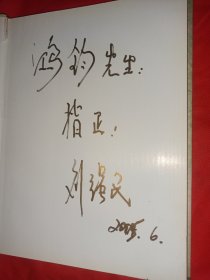 鸿钧先生:
指正!
刘强民
2005.6.